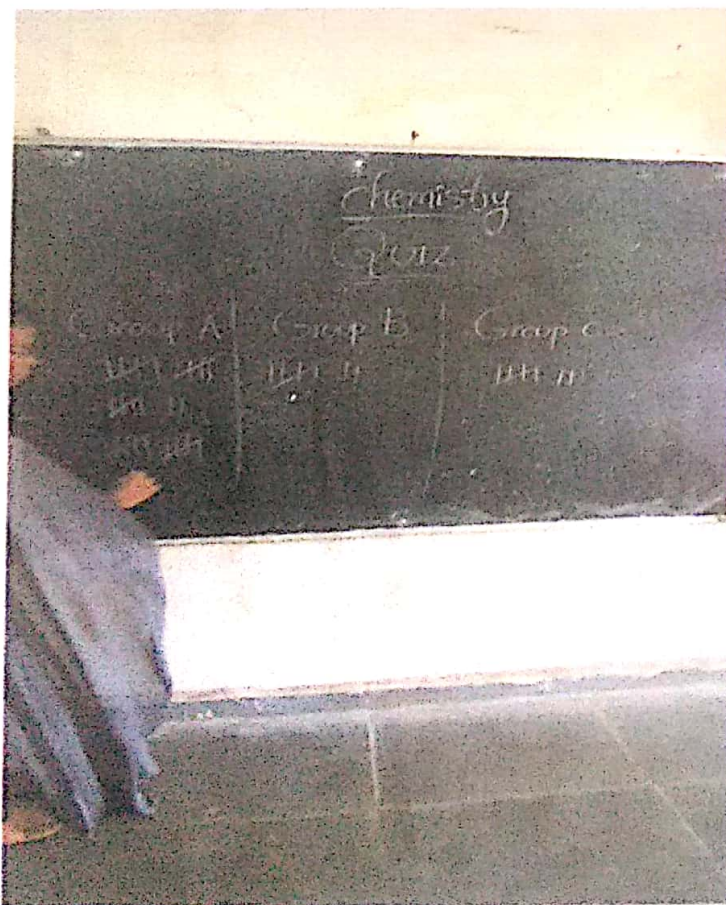 Chemistry
Quiz
Group A Group B Group C